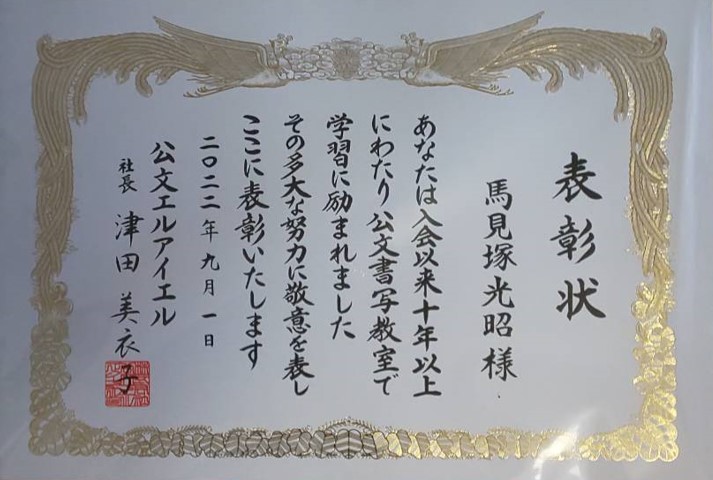 表彰状
馬見塚光昭様
あなたは入会以来十年以上
にわたり公文書写教室で
学習に励まれました
その多大な努力に敬意を表し
ここに表彰いたします
二〇二二年九月一日
公文エルアイエル
社長 津田美衣子